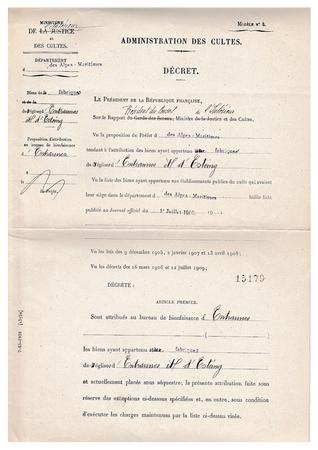 MINISTÈRE
l'Intérieur
DE LA JUSTICE
ET
DES CULTES.
DÉPARTEMENT
des Alpes-Maritimes
Biens de la fabrique
de l'église d'Entraunes
St d'Esteng
Proposition d'attribution
au bureau de bienfaisance
d'Entraunes
MODÈLE N° 4.
ADMINISTRATION DES CULTES.
DÉCRET.
LE PRÉSIDENT DE LA RÉPUBLIQUE FRANÇAISE,
Président du Conseil de l'Intérieur
Sur le Rapport du Garde des Sceaux, Ministre de la Justice et des Cultes,
Vu la proposition du Préfet d des Alpes-Maritimes
tendant à l'attribution des biens ayant appartenu fabriques
de l'église d'Entraunes St d'Esteng
Vu la liste des biens ayant appartenu aux établissements publics du culte qui avaient
leur siège dans le département d des Alpes-Maritimes ladite liste
publiée au Journal officiel du 1er Juillet 1909
Vu les lois des 9 décembre 1905, 2 janvier 1907 et 13 avril 1908;
Vu les décrets des 16 mars 1906 et 12 juillet 1909;
15179
DÉCRÈTE :
ARTICLE PREMIER.
Sont attribués au bureau de bienfaisance d'Entraunes
les biens ayant appartenu fabriques
de l'église d'Entraunes St d'Esteng
et actuellement placés sous séquestre; la présente attribution faite sous
réserve des exceptions ci-dessous spécifiées et, en outre, sous condition
d'exécuter les charges mentionnées par la liste ci-dessus visée.